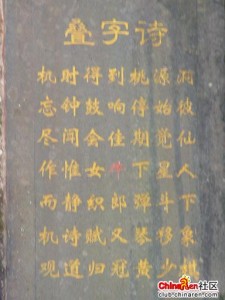 叠字诗
机时得到桃源洞
忘钟鼓响停始彼
尽闻会佳期觉仙
作惟女牛下星人
而静织郎弹斗下
机诗赋又琴移象
观道归冠黄少棋
ChinaRen社区
club.chinaren.com